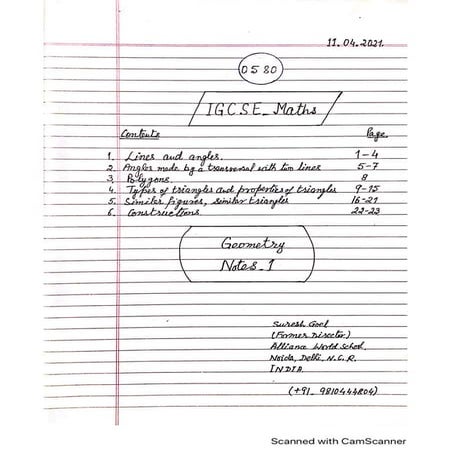 11.04.2021.
0580
IGCSE_Maths
Contents Page
1. Lines and angles. 1-4
2. Angles made by a transversal with two lines 5-7
3. Polygons. 8
4. Types of triangles and properties of triangles 9-15
5. Similar figures, similar triangles 16-21
6. Constructions. 22-23
Geometry
Notes_1
Suresh Goel
(Former Director)
Alliance World School,
Noida, Delhi, N.C.R.
INDIA
(+91_9810444804)
Scanned with CamScanner